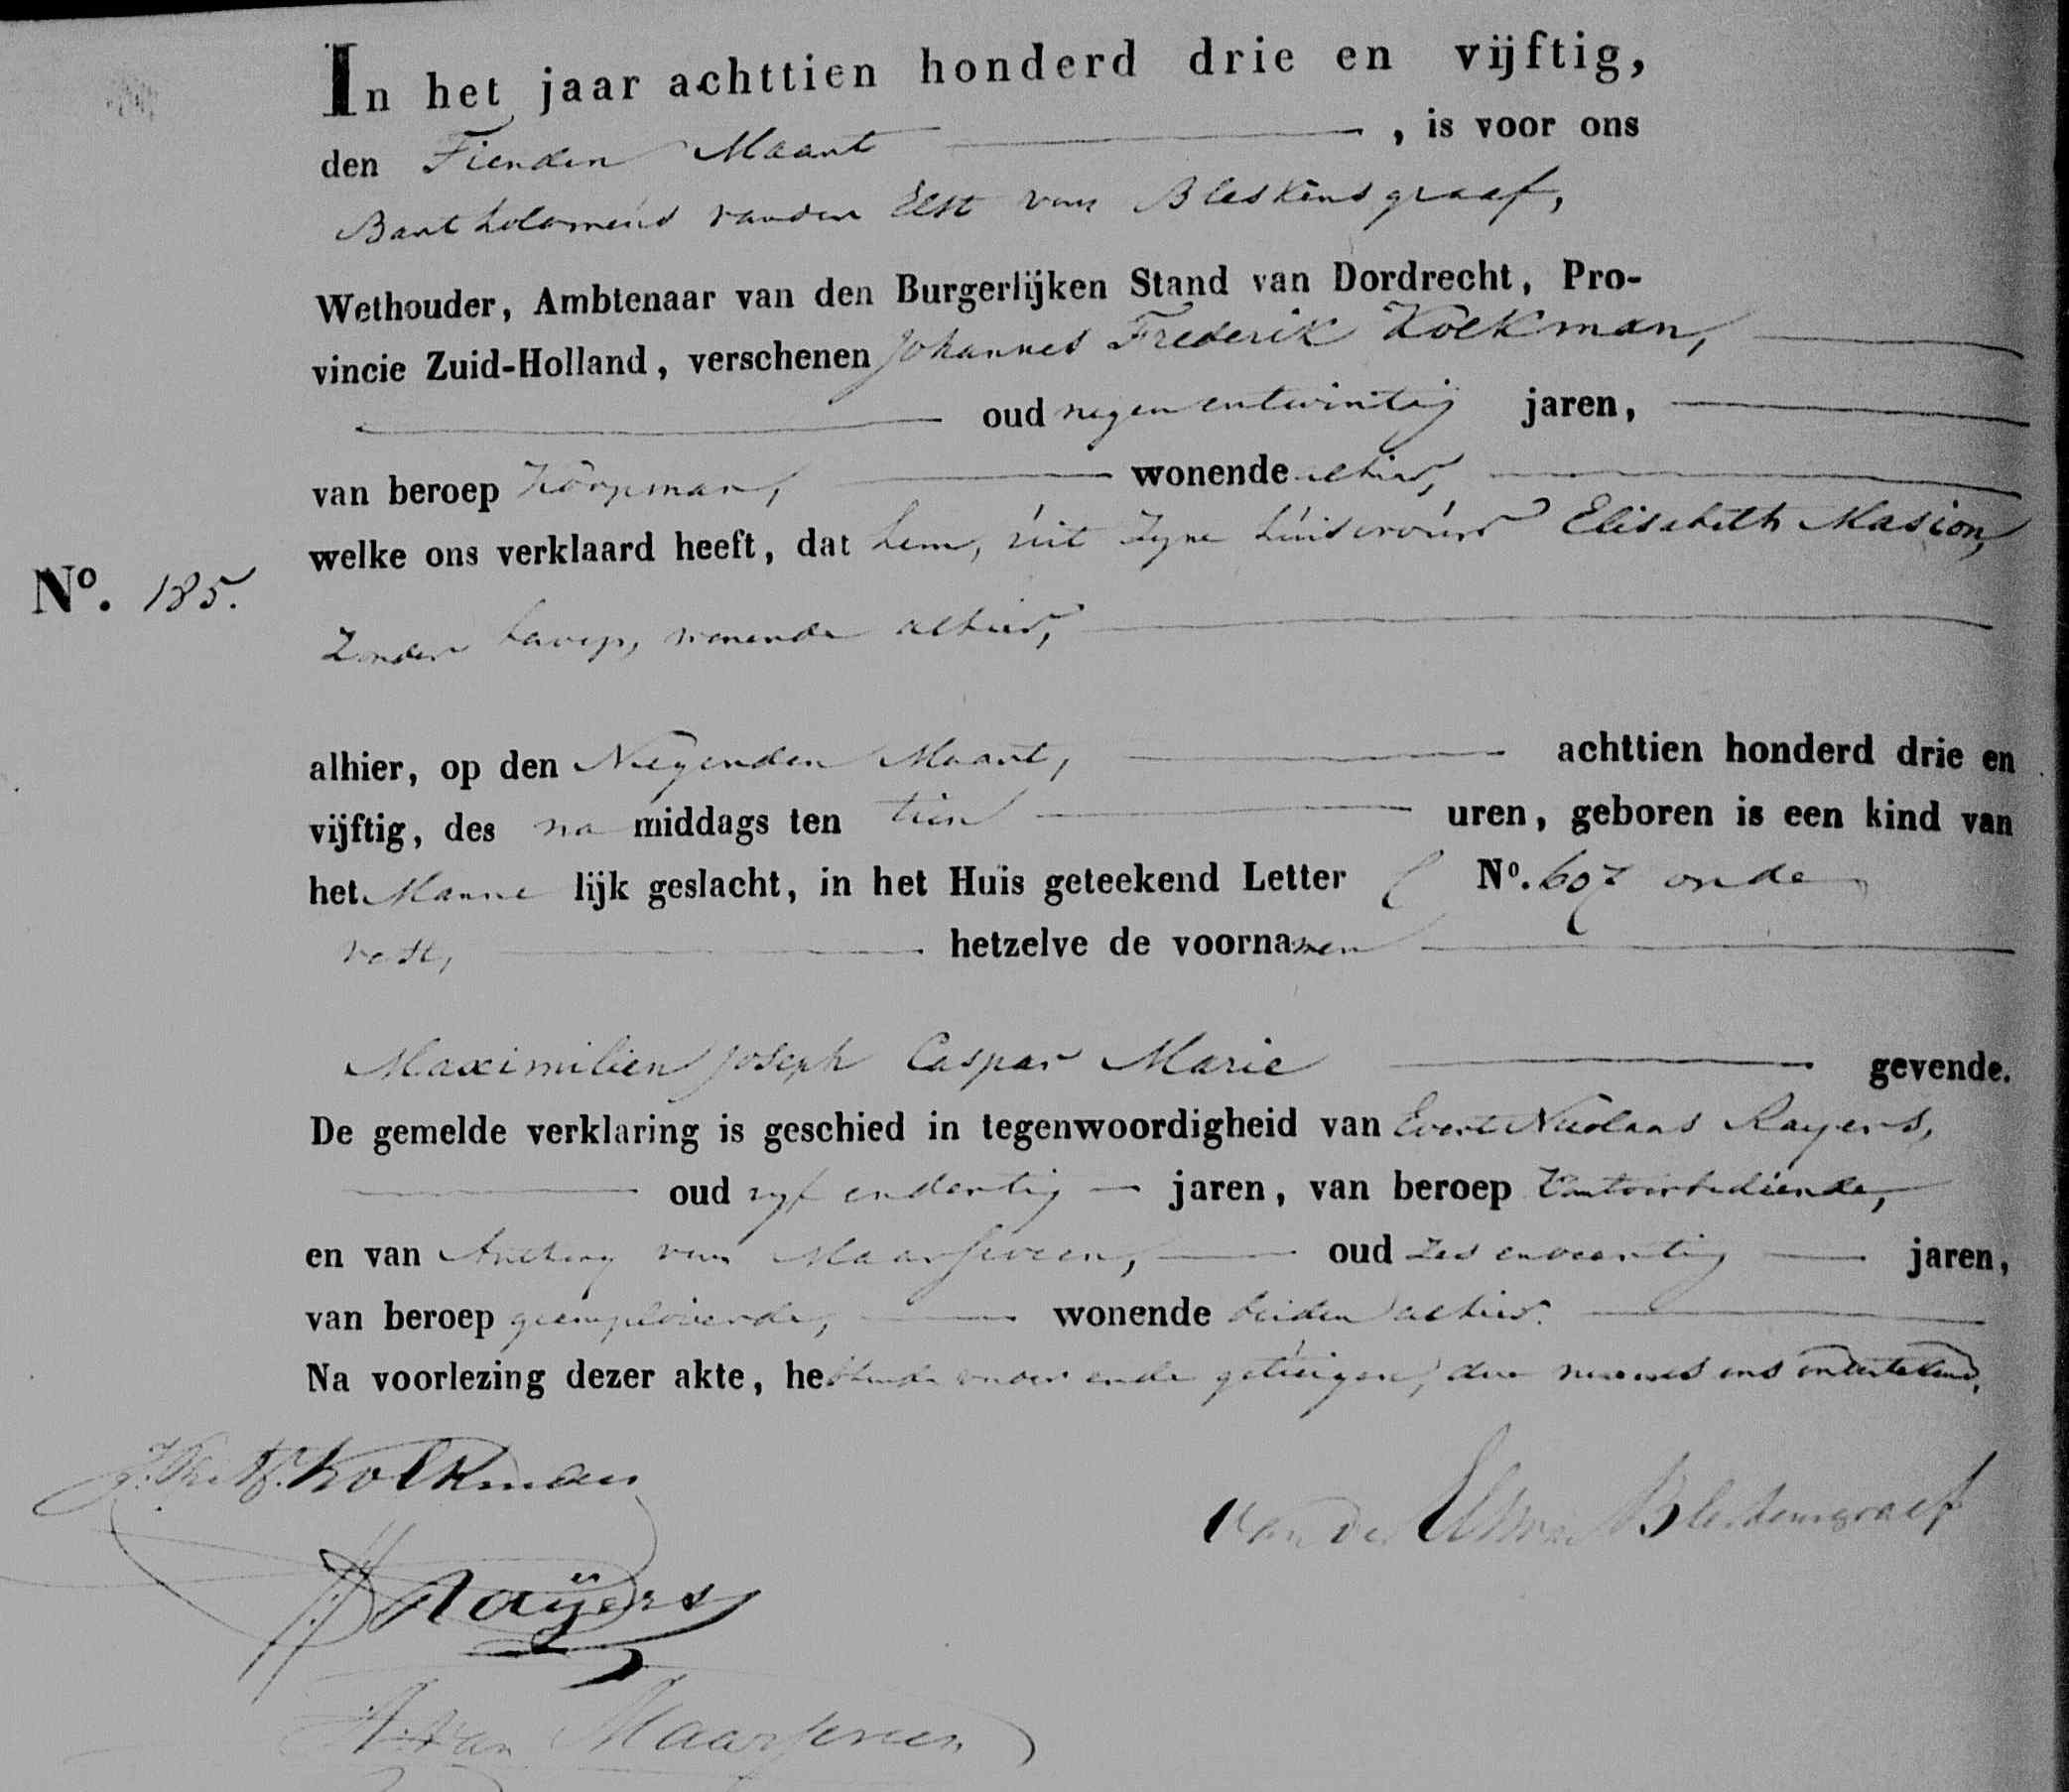 In het jaar achttien honderd drie en vijftig,
den Tienden Maart , is voor ons
Bartholomeus vanden Elst van Bleskensgraaf,
Wethouder, Ambtenaar van den Burgerlijken Stand van Dordrecht, Pro-
vincie Zuid-Holland, verschenen Johannes Frederik Kolkman,
oud negen entwintig jaren,
van beroep Koopman, wonende alhier,
welke ons verklaard heeft, dat hem, uit zyne huisvrouw Elisabeth Masion,
No. 185.
Zonder beroep, wonende alhier,
alhier, op den Negenden Maart, achttien honderd drie en
vijftig, des na middags ten tien uren, geboren is een kind van
het Manne lijk geslacht, in het Huis geteekend Letter C No. 607 onde
hetzelve de voornamen
Maximilien Joseph Caspar Marie gevende.
De gemelde verklaring is geschied in tegenwoordigheid van Evert Nicolaas Rayers,
oud vyf endertig jaren, van beroep Kantoorbediende,
en van Anthony van Maarseveen, oud zes enveertig jaren,
van beroep geemploieerde, wonende beiden alhier.
Na voorlezing dezer akte, hebbende vader ende getuigen, dee nevens ons onderteekend,
Kolkman
Van der Elst van Bleskensgraaf
Raÿers
A. van Maarseveen